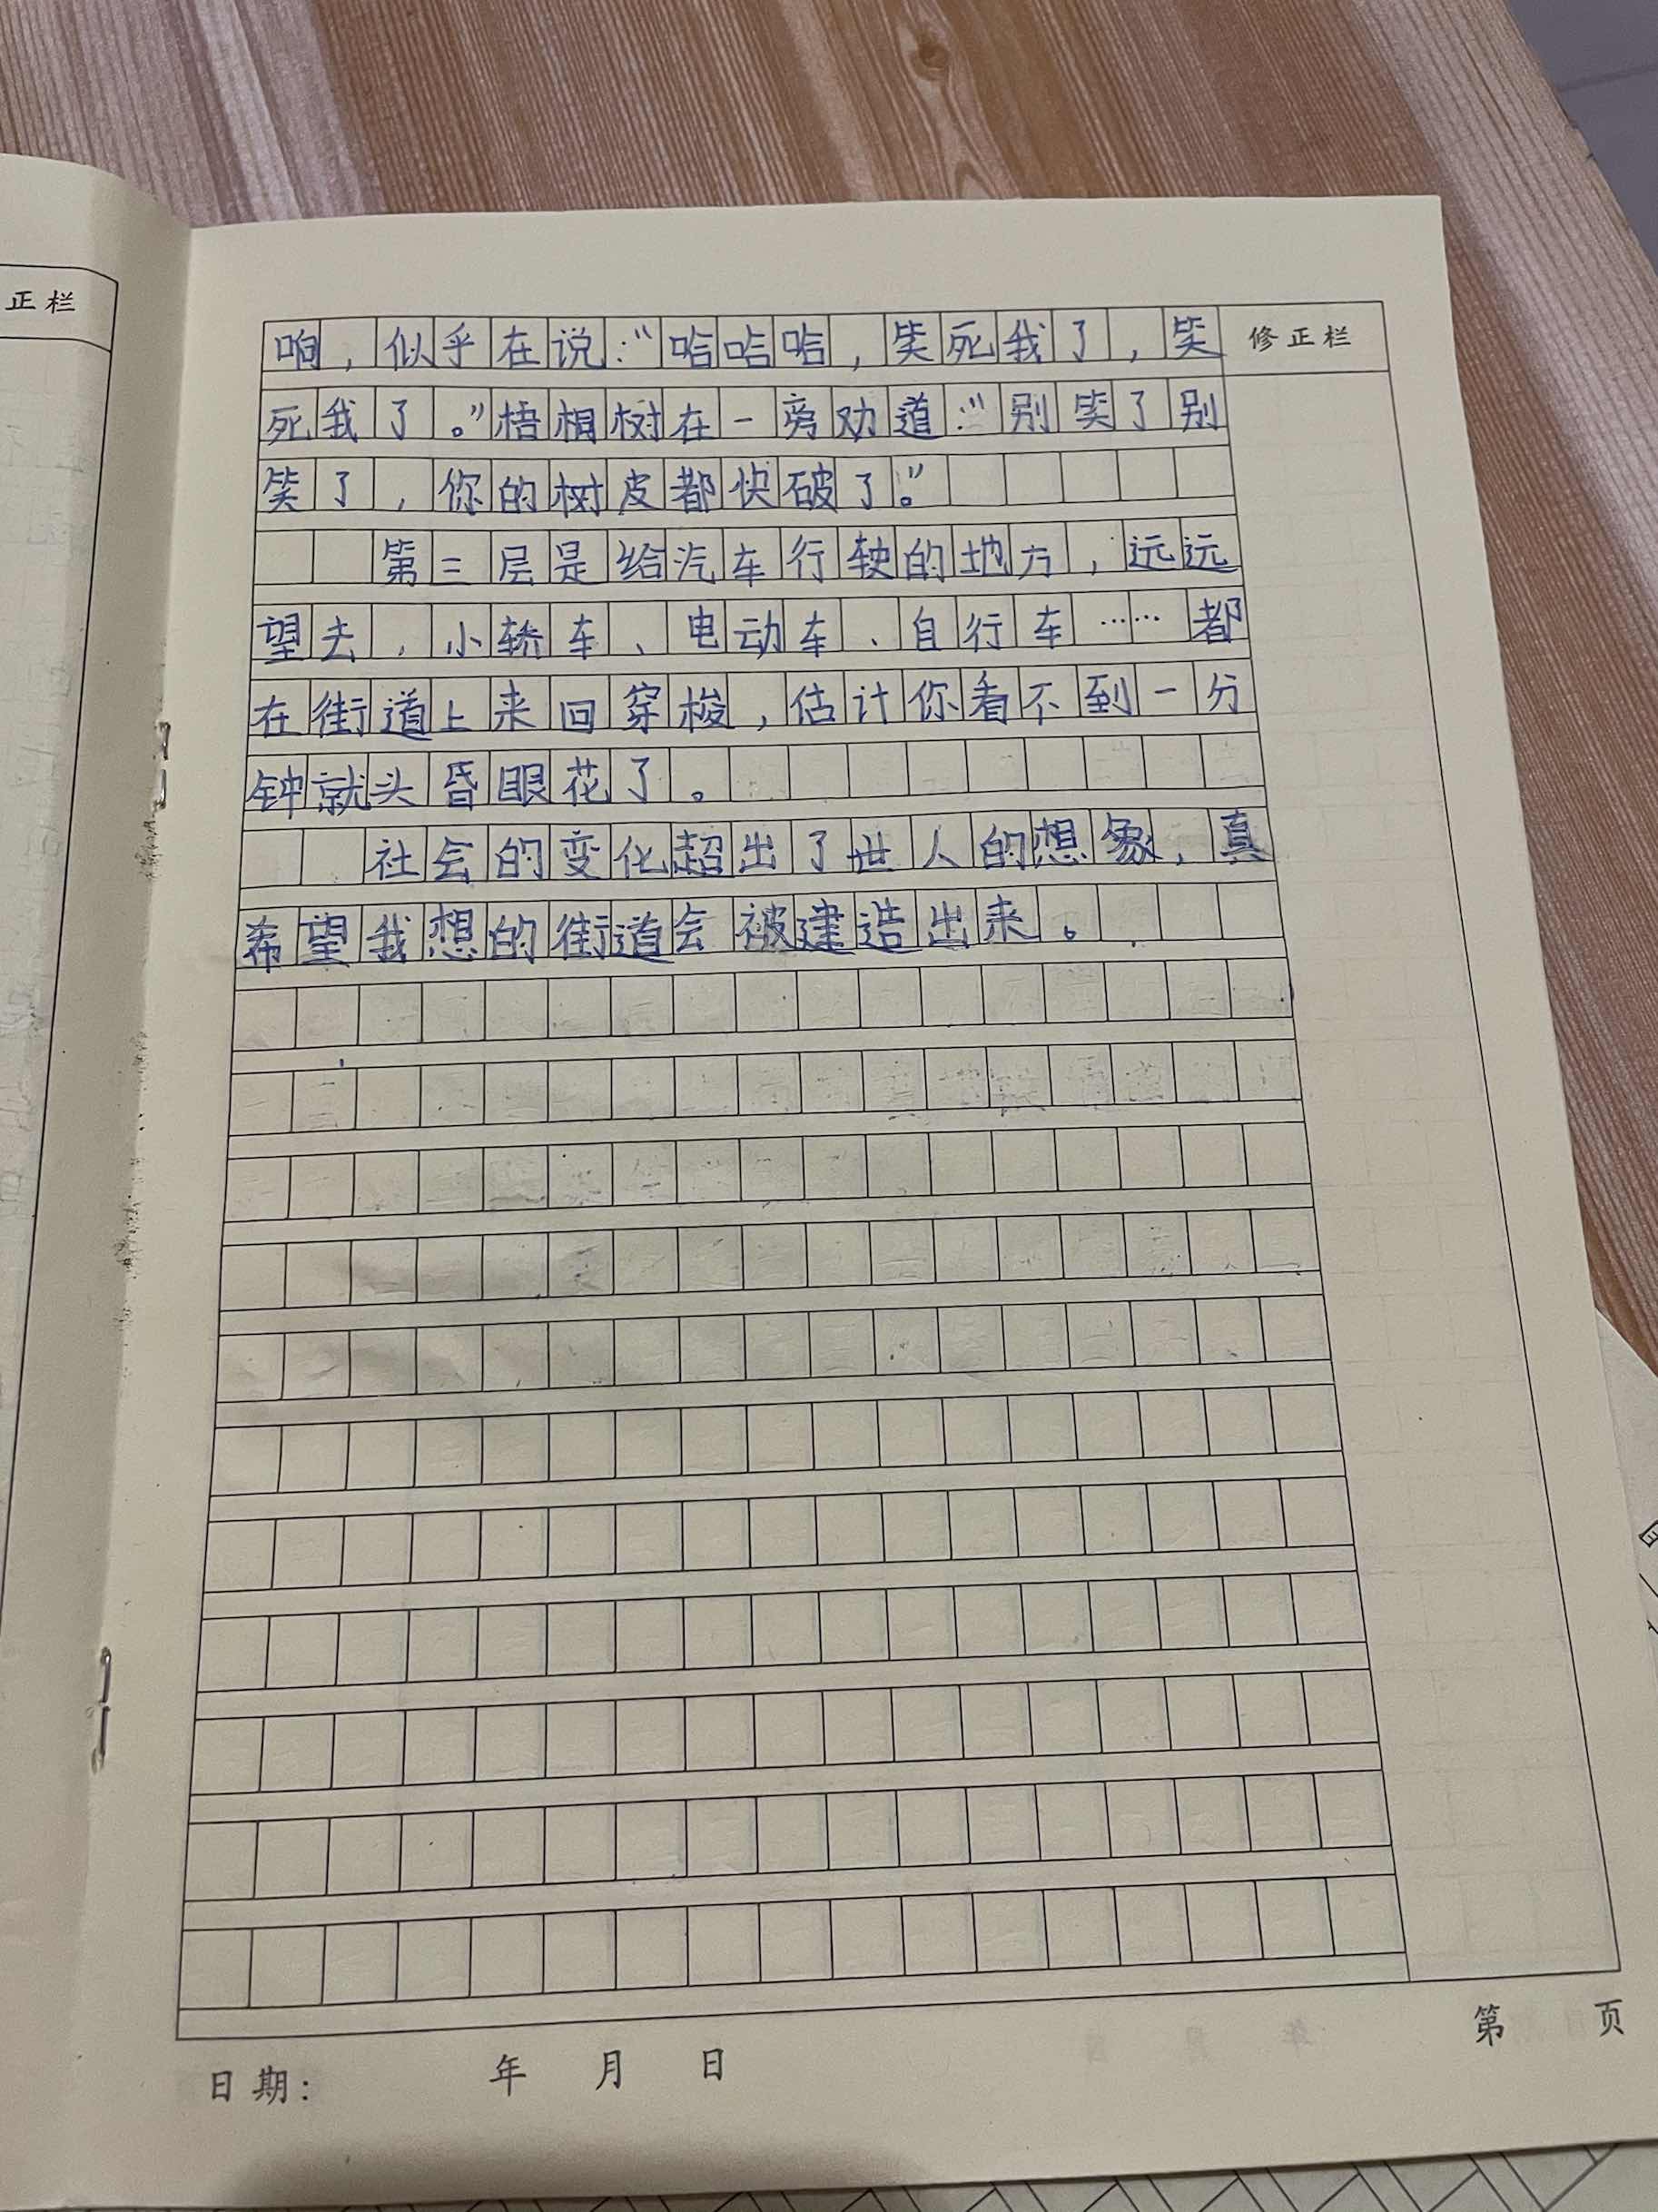 正栏
修正栏
响，似乎在说：“哈哈哈，笑死我了，笑
死我了。”梧桐树在一旁劝道：“别笑了别
笑了，你的树皮都快破了。”
第三层是给汽车行驶的地方，远远
望去，小轿车、电动车、自行车……都
在街道上来回穿梭，估计你看不到一分
钟就头昏眼花了。
社会的变化超出了世人的想象，真
希望我想的街道会被建造出来。
第 页
日期： 年 月 日